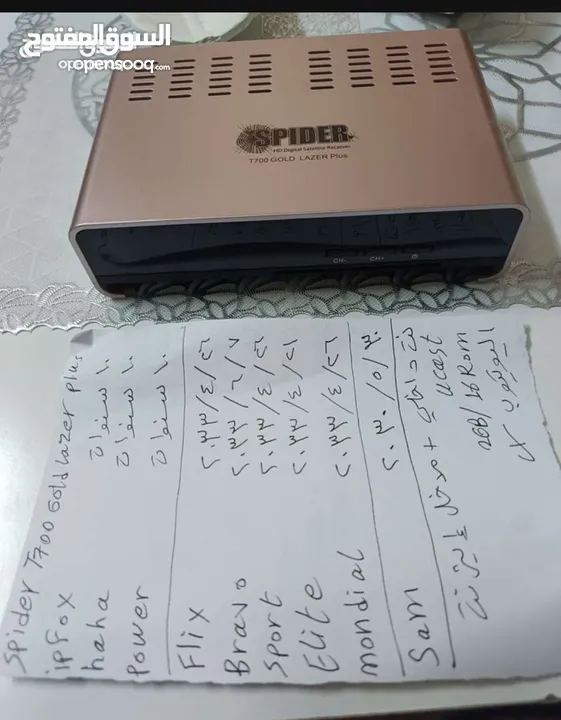 السوق المفتوح
opensooq.com
SPIDER
HD Digital Satellite Receiver
T700 GOLD LAZER Plus
CH- CH+
Spider T700 Gold lazer plus
ipfox ١٠ سنوات
haha ١٠ سنوات
Power ١٠ سنوات
Flix ٢٠٣٣/٤/٢٦
Bravo ٢٠٣٣/٦/٧
Sport ٢٠٣٣/٤/٢٦
Elite ٢٠٣٣/٤/٢١
mondial ٢٠٣٣/٤/٢٦
Sam ٢٠٣٠/٥/٣٠
نت داخلي + مدخل إيثرنت
ucast
2GB/16Rom
اليوتيوب X